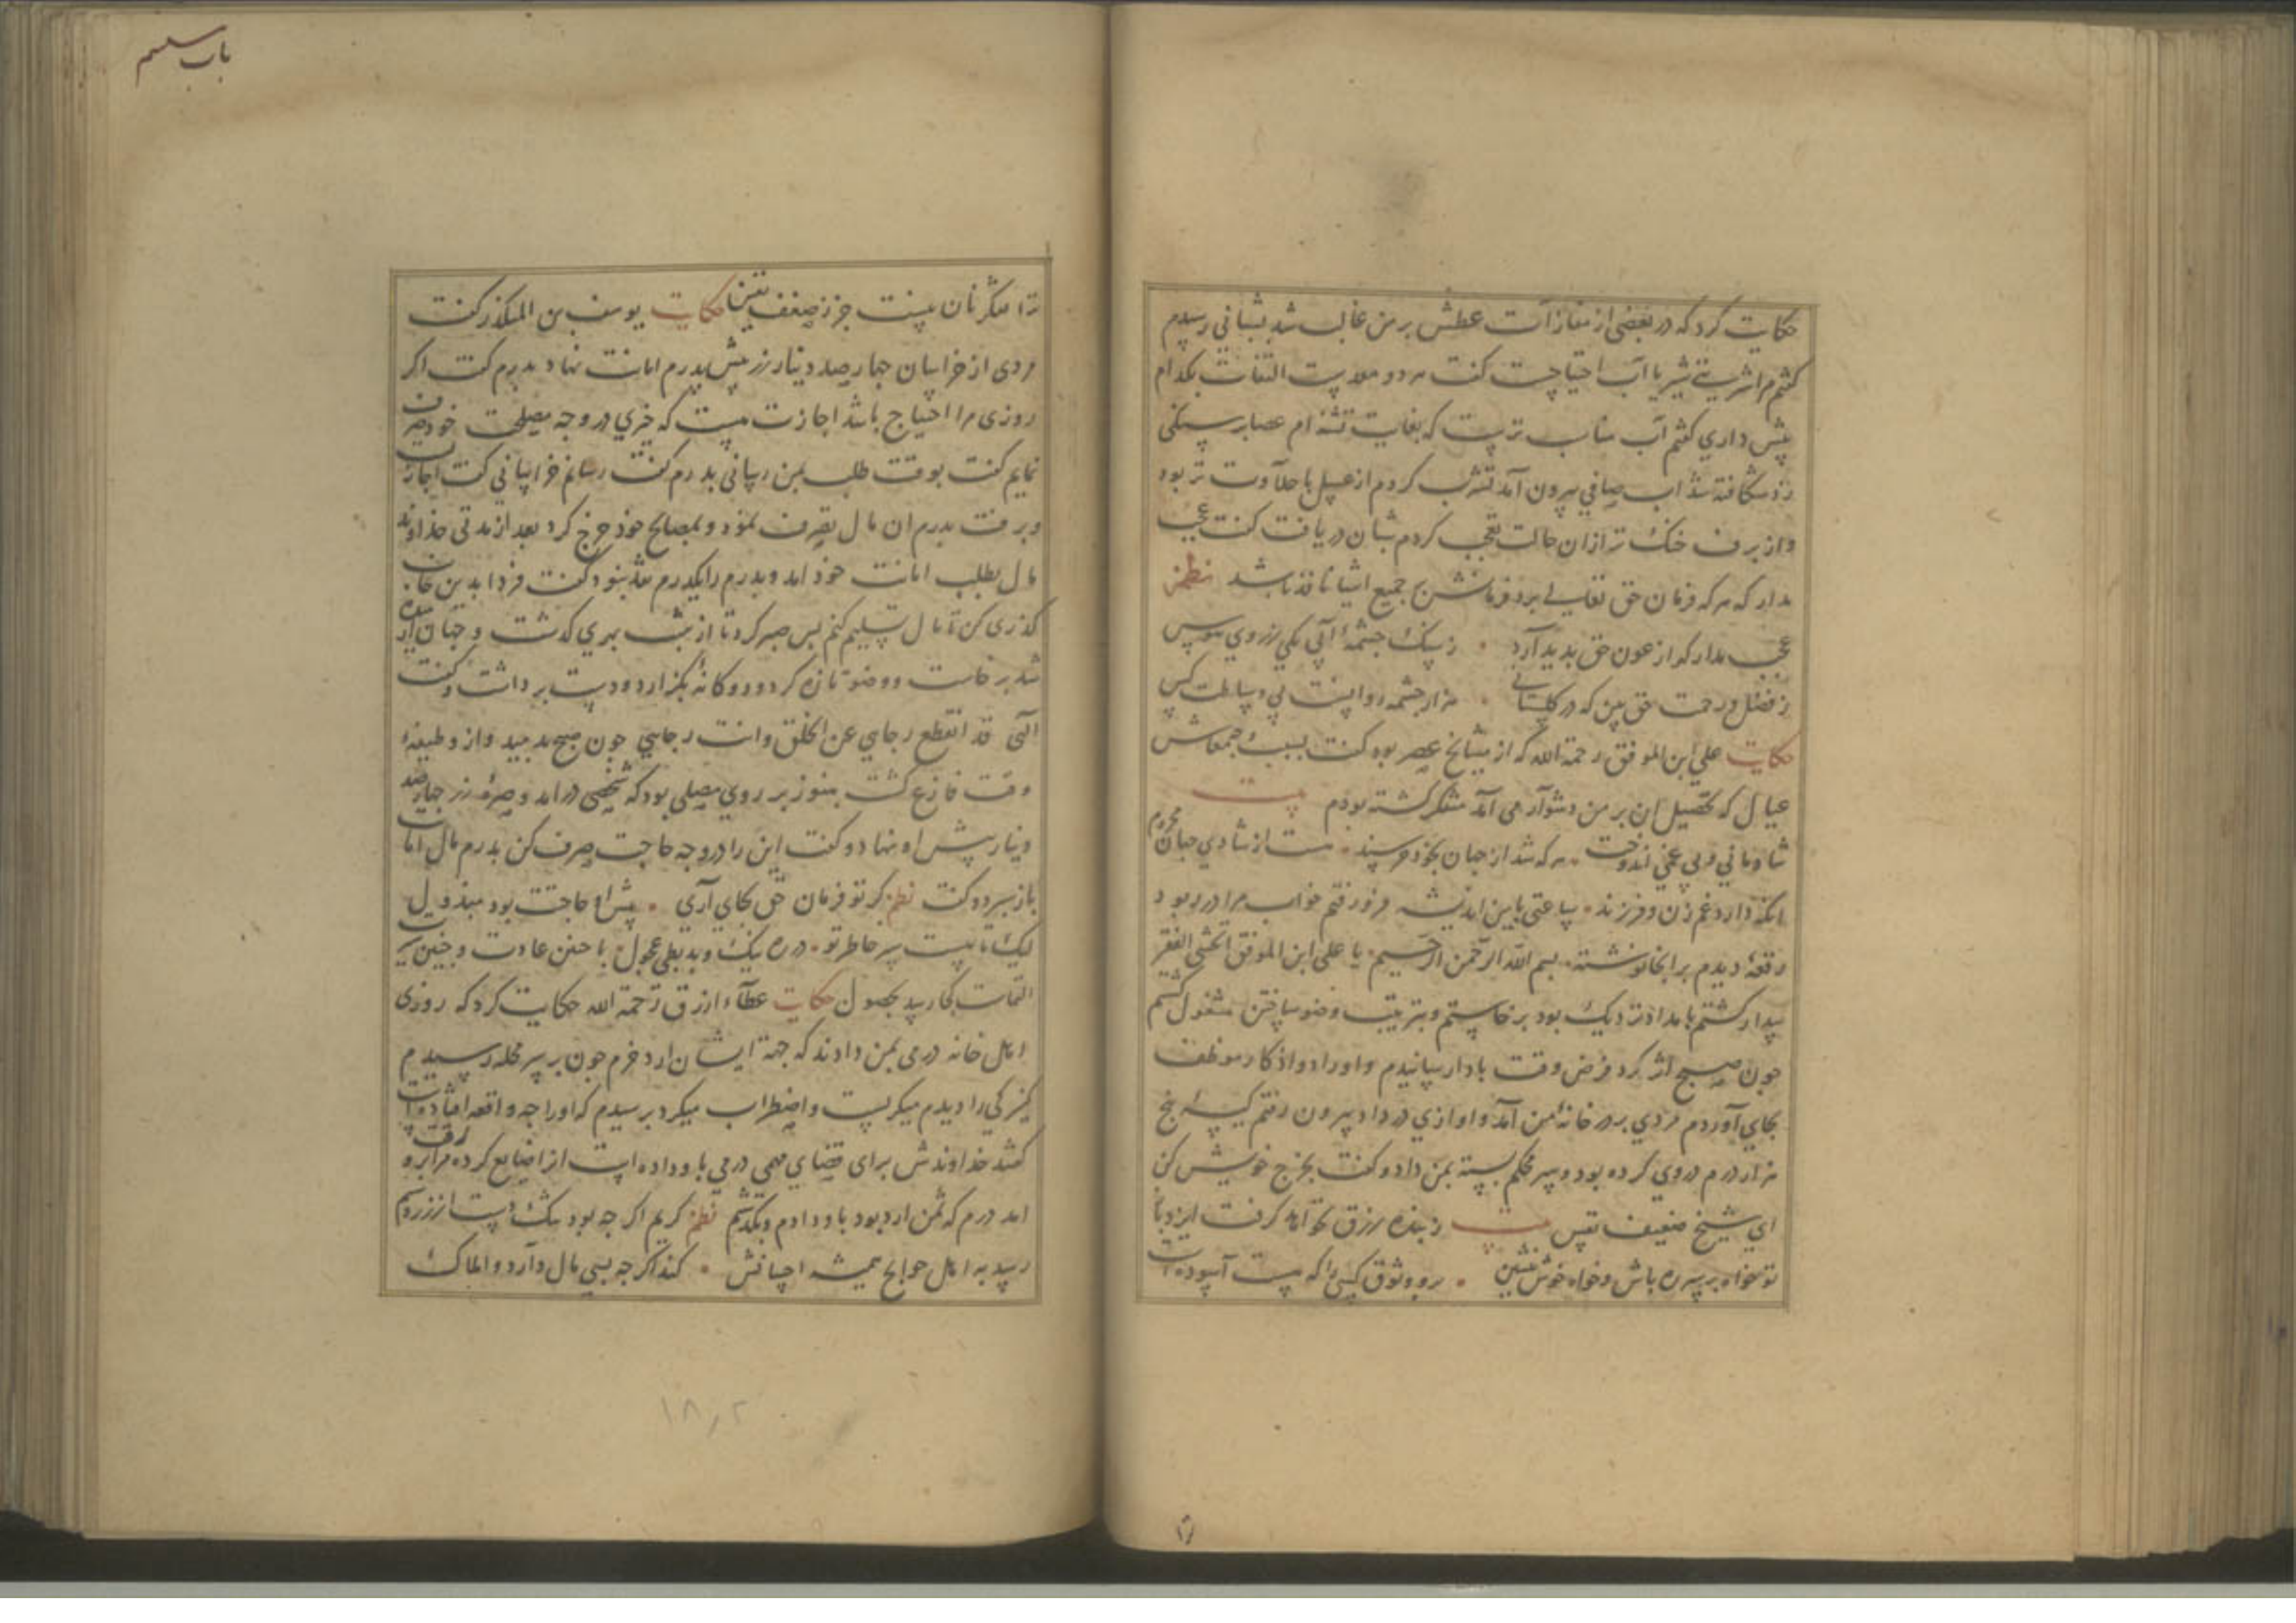 حکایت کرد که در بعضی از مفازات عطش بر من غالب شد بشبانی رسیدم
کفتم مرا شربتی شیر یا آب احتیاجست کفت هر دو هست التفات بکدام
بیش داری کفتم آب مناسب ترست که بغایت تشنه ام عصا بر سنکی
زد شکافته شد اب صافی بیرون آمد تشرب کردم از عسل با حلاوت تر بود
و از برف خنک تر ازان حالت تعجب کردم شبان دریافت کفت عجب
مدار که هر که فرمان حق تعالی برد فرمانش بر جمیع اشیا نافذ باشد نظم
عجب مدار که از عون حق بدید آرد ز سنک جشمهٔ آبی یکی ز روی
ز فضل و رحمت حق بین که در هزار جشمه روانست بی وساطت کس
حکایت علی ابن الموفق رحمة الله که از مشایخ عصر بود کفت بسبب جهة معاش
عیال که تحصیل ان بر من دشوار می آمد متفکر کشته بودم بیت
شادمانی و بی غمی اندوخت هر که شد از جهان بخود خرسند هست از شادی جهان محروم
انکه دارد غم زن و فرزند ساعتی باین اندیشه فرو رفتم خواب مرا در ربود
رقعهٔ دیدم بر انجا نوشته بسم الله الرحمن الرحیم یا علی ابن الموفق اتخشی الفقر
بیدار کشتم بامداد نزدیک بود بر خاستم و بترتیب وضو ساختن مشغول کشتم
جون صبح اثر کرد فرض وقت بادا رسانیدم و اوراد و اذکار موظف
بجای آوردم مردی بر در خانهٔ من آمد و اوازی در داد بیرون رفتم کیسهٔ بنج
هزار درم در وی کرده بود و سر محکم بسته بمن داد و کفت بخرج خویش کن
ای شیخ ضعیف یقین بیت ز بنده رزق نکو آمد کرفت ایزد
تو خواه بر سر ره باش و خواه خوش بنشین برو وثوق کسی را که هست آسوده است
ترا تفکر نان نیست جز ز ضعف یقین حکایت یوسف بن المنکدر کفت
مردی از خراسان جهار صد دینار زر پیش بدرم امانت نهاد بدرم کفت اکر
روزی مرا احتیاج باشد اجازت هست که جیزی در وجه مصلحت خود صرف
نمایم کفت بوقت طلب بمن رسانی بدرم کفت رسانم خراسانی کفت اجازت
و برفت بدرم ان مال تصرف نمود و بمصالح خود خرج کرد بعد از مدتی خداوند
مال بطلب امانت خود امد و بدرم را یکدرم نقد نبود کفت فردا بدین خانه
کذری کن تا مال تسلیم کنم بس صبر کرد تا از شب بهری کذشت و جهان
شد بر خاست و وضو تازه کرد و دوکانهٔ بکزارد و دست برداشت و کفت
الهی قد انقطع رجایی عن الخلق و انت رجایی جون صبح بدمید و از وظیفهٔ
وقت فارغ کشت هنوز بر روی مصلی بود که شخصی در امد و صرهٔ زر جهار صد
دینار پیش او نهاد و کفت این را در وجه حاجت صرف کن بدرم مال امانت
باز سپرد و کفت نظم کر تو فرمان حق بجای آری پیش او حاجتت بود مبذول
لیک تا نیست بر خاطر تو در ره نیک و بد بطی عجول با جنین عادت و جنین سیرت
التماست کجا رسد بحصول حکایت عطاء ازرق رحمة الله حکایت کرد که روزی
اهل خانه درمی بمن دادند که جهة ایشان ارد خرم جون بر سر محله رسیدم
کنیزکی را دیدم میکریست و اضطراب میکرد برسیدم که اورا جه واقعه افتاده است
کفتند خداوندش برای قضای مهمی درمی باو داده است از او ضایع کرده مرا برو رقت
امد درم که ثمن ارد بود باو دادم و بکذشتم نظم کریم اکر جه بود تنک دست از زر و سیم
رسد به اهل حوایج همیشه احسانش کند اکر جه بسی مال دارد و املاک
باب سیم
۱۸٫۲
ترا